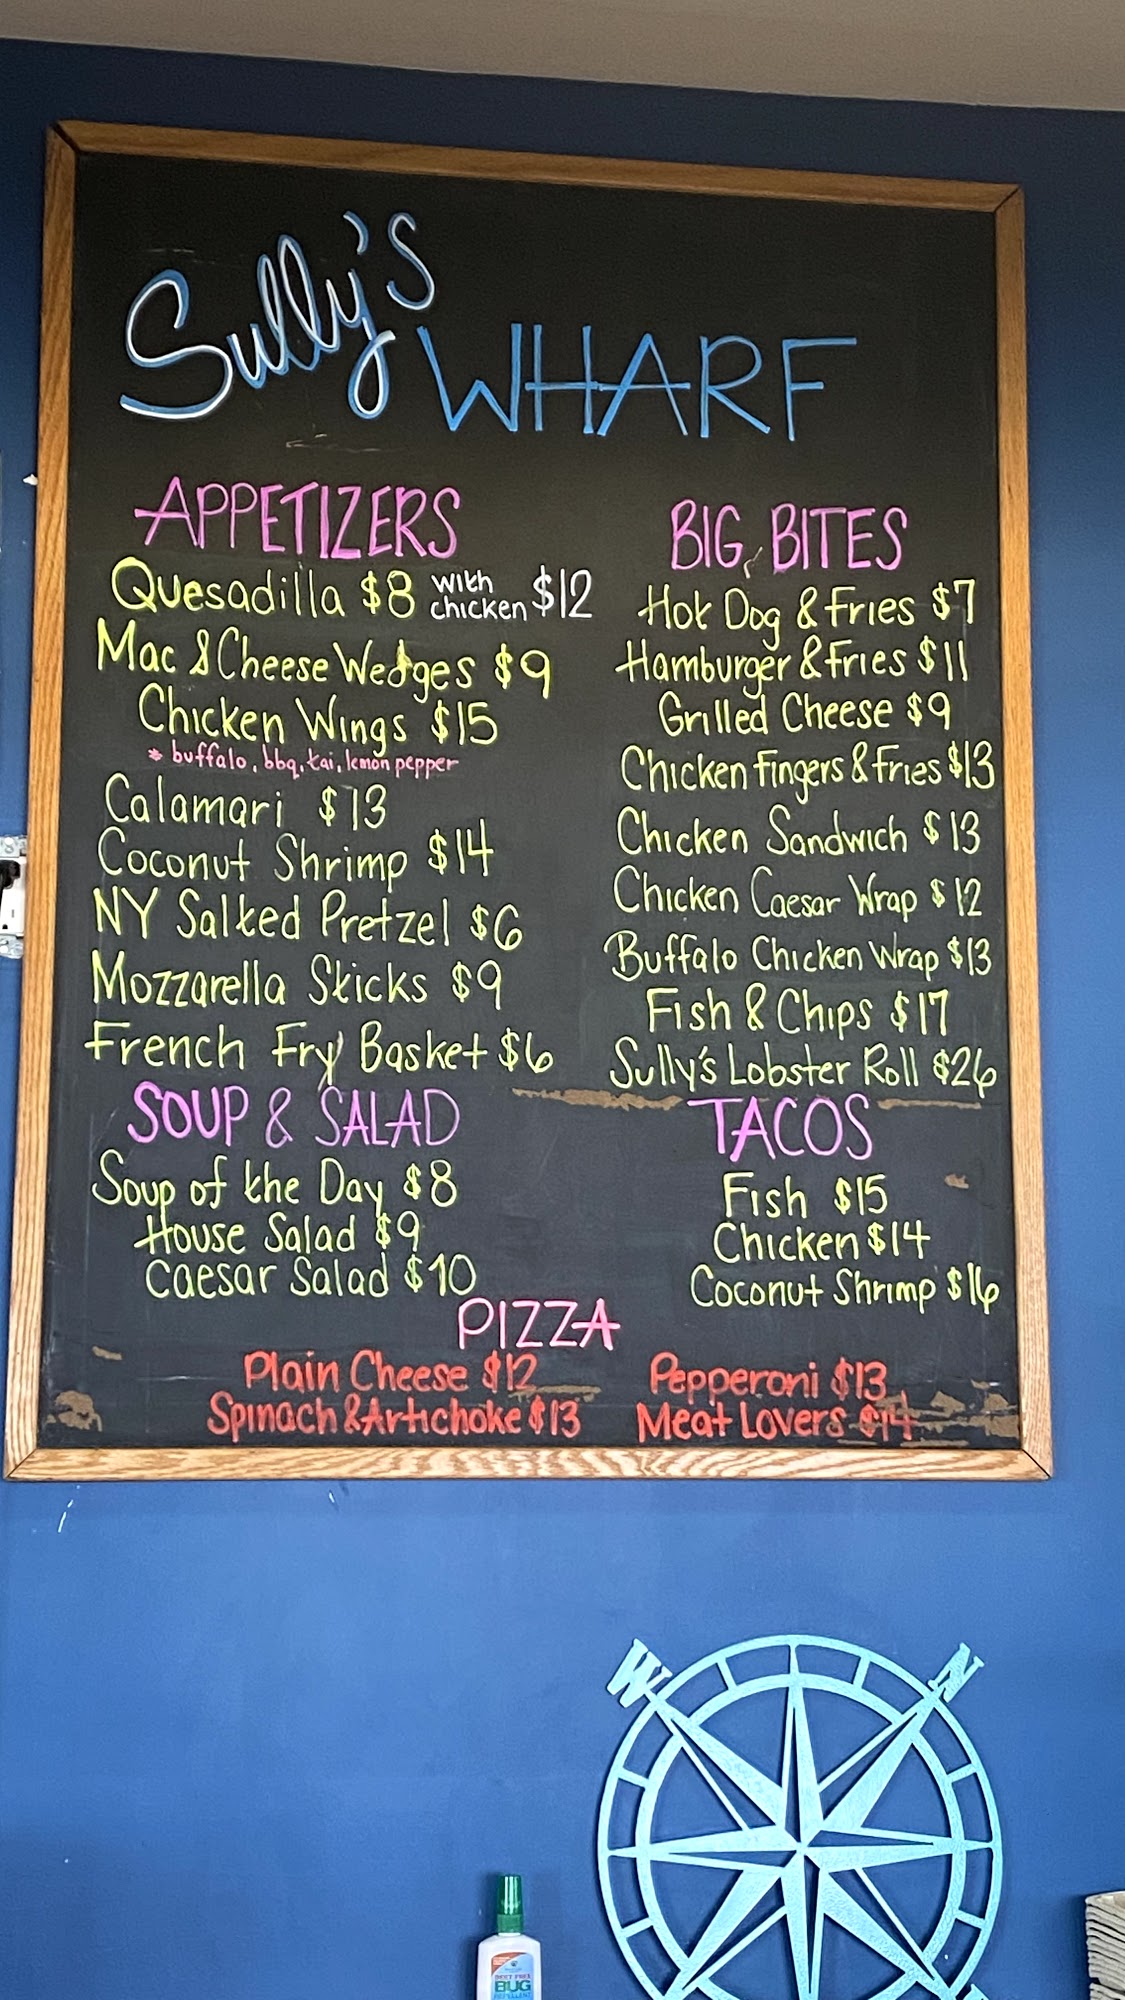 Sully's
WHARF
APPETIZERS
Quesadilla $8 with chicken $12
Mac & Cheese Wedges $9
Chicken Wings $15
* buffalo, bbq, tai, lemon pepper
Calamari $13
Coconut Shrimp $14
NY Salted Pretzel $6
Mozzarella Sticks $9
French Fry Basket $6
SOUP & SALAD
Soup of the Day $8
House Salad $9
Caesar Salad $10
BIG BITES
Hot Dog & Fries $7
Hamburger & Fries $11
Grilled Cheese $9
Chicken Fingers & Fries $13
Chicken Sandwich $13
Chicken Caesar Wrap $12
Buffalo Chicken Wrap $13
Fish & Chips $17
Sully's Lobster Roll $26
TACOS
Fish $15
Chicken $14
Coconut Shrimp $16
PIZZA
Plain Cheese $12
Spinach & Artichoke $13
Pepperoni $13
Meat Lovers $14
W
N
DEET FREE
BUG
REPELLENT